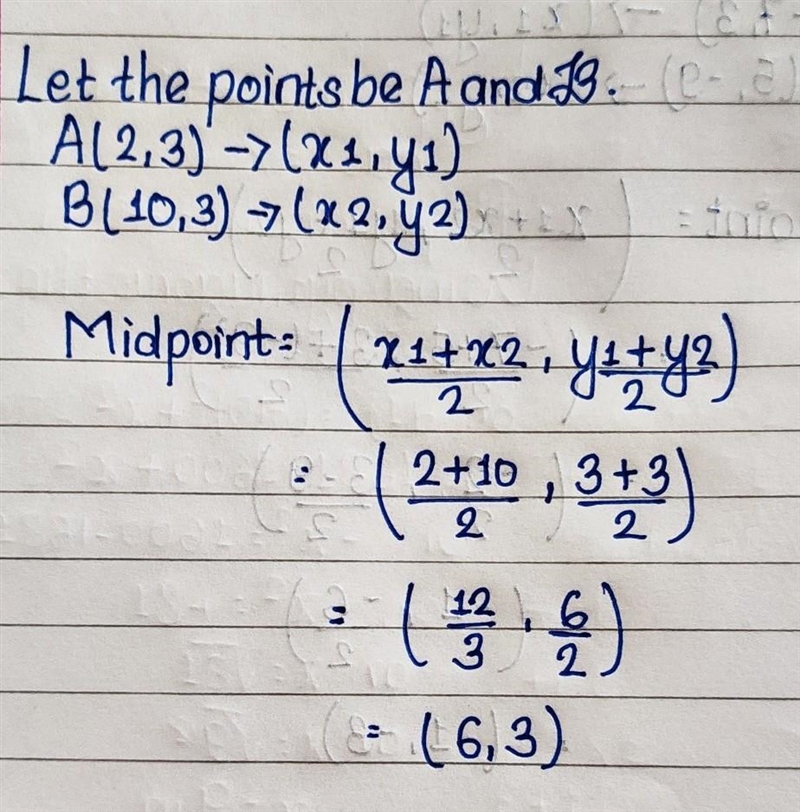 Let the points be A and B.
A(2,3) -> (x1, y1)
B(10,3) -> (x2, y2)
Midpoint = ( x1+x2/2 , y1+y2/2 )
= ( 2+10/2 , 3+3/2 )
= ( 12/3 , 6/2 )
= (6,3)